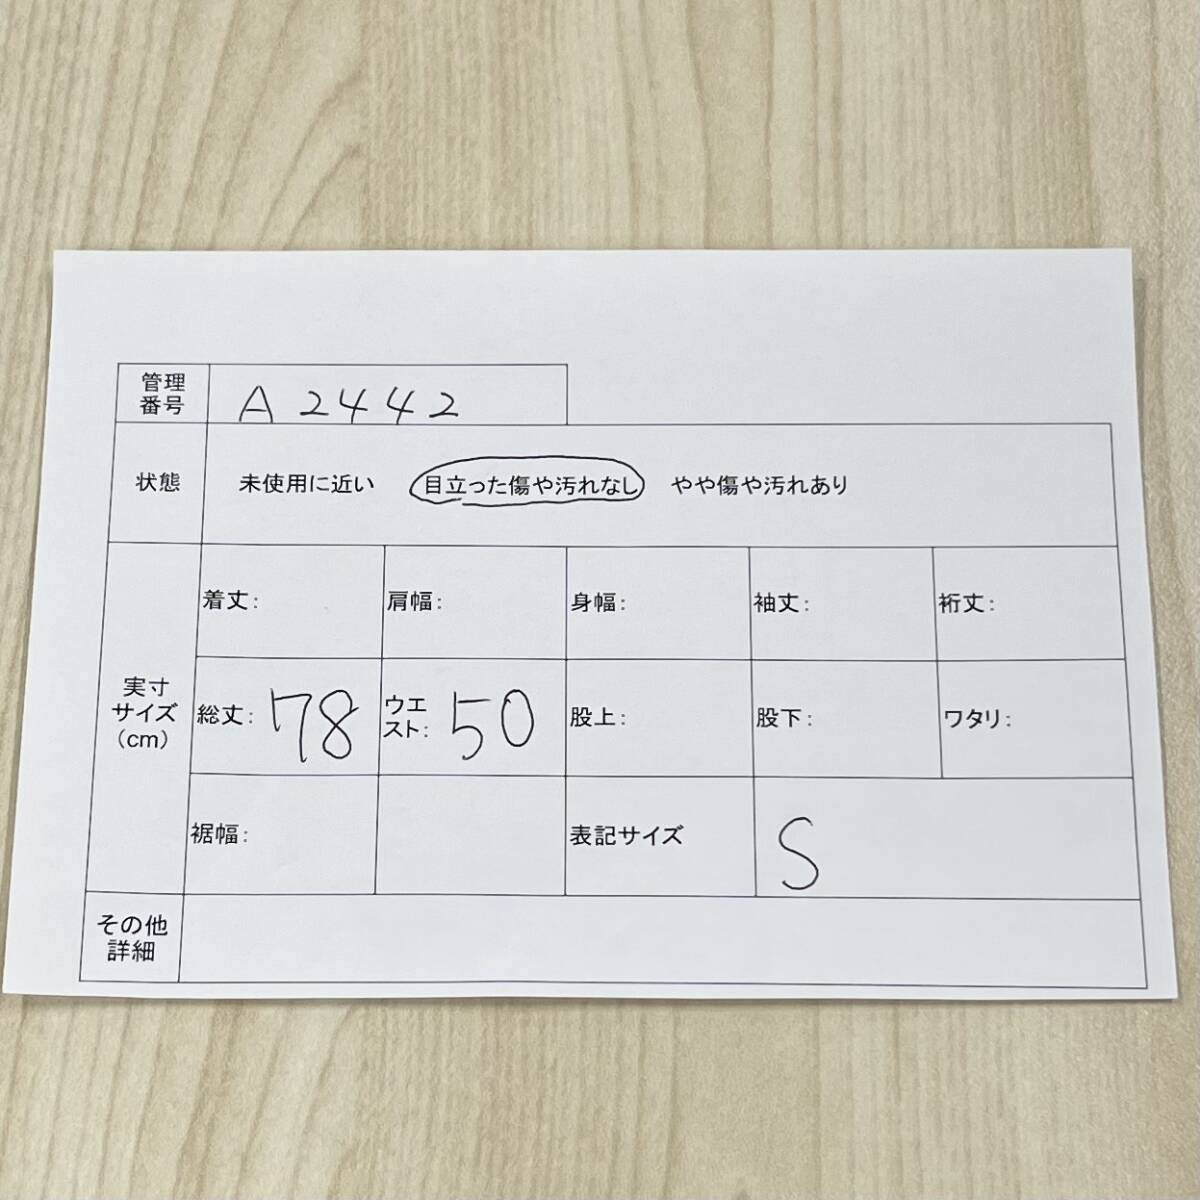 管理
番号
A2442
状態
未使用に近い 目立った傷や汚れなし やや傷や汚れあり
実寸
サイズ
(cm)
着丈:
肩幅:
身幅:
袖丈:
裄丈:
総丈: 78
ウエ
スト: 50
股上:
股下:
ワタリ:
裾幅:
表記サイズ
S
その他
詳細